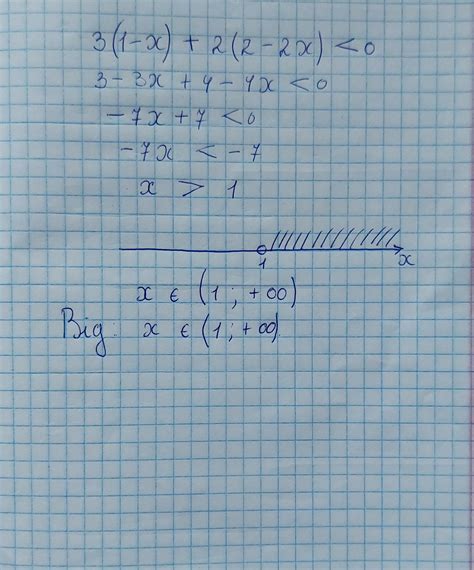 3(1-x) + 2(2-2x) < 0
3 - 3x + 4 - 4x < 0
-7x + 7 < 0
-7x < -7
x > 1
1
x
x ∈ (1; +∞)
Від: x ∈ (1; +∞)